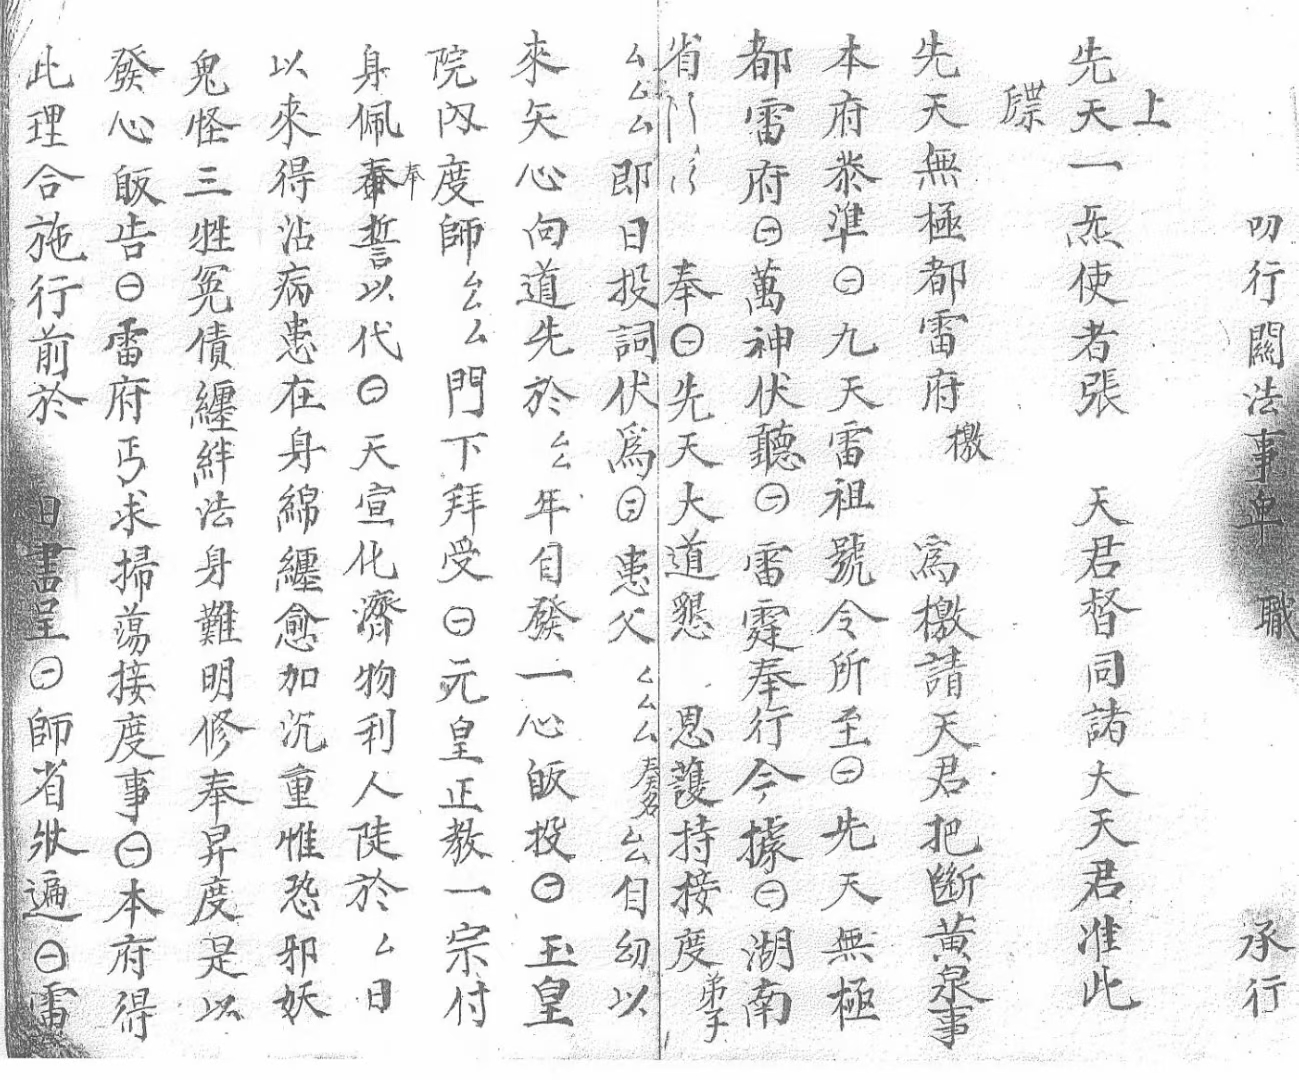 叨行闗法事卑職　承行
上
先天一炁使者張　天君督同諸大天君准此
牒
先天無極都雷府　檄　為檄請天君把斷黃泉事
本府恭準㊀九天雷祖號令所至㊀先天無極
都雷府㊀萬神伏聽㊀雷霆奉行今據㊀湖南
省　奉㊀先天大道懇　恩護持接度弟子
厶厶厶即日投詞伏為㊐患父厶厶厶奉名厶自幼以
來矢心向道先於厶厶年自發一心皈投㊀玉皇
院內度師厶厶門下拜受㊀元皇正教一宗付
身佩奉奉誓以代㊀天宣化濟物利人陡於厶日
以來得沾病患在身綿纏愈加沉重惟恐邪妖
鬼怪三牲冤債纏絆法身難明修奉昇度是以
發心皈告㊀雷府丐求掃蕩接度事㊀本府得
此理合施行前於　日書呈㊀師省狀遍㊀雷